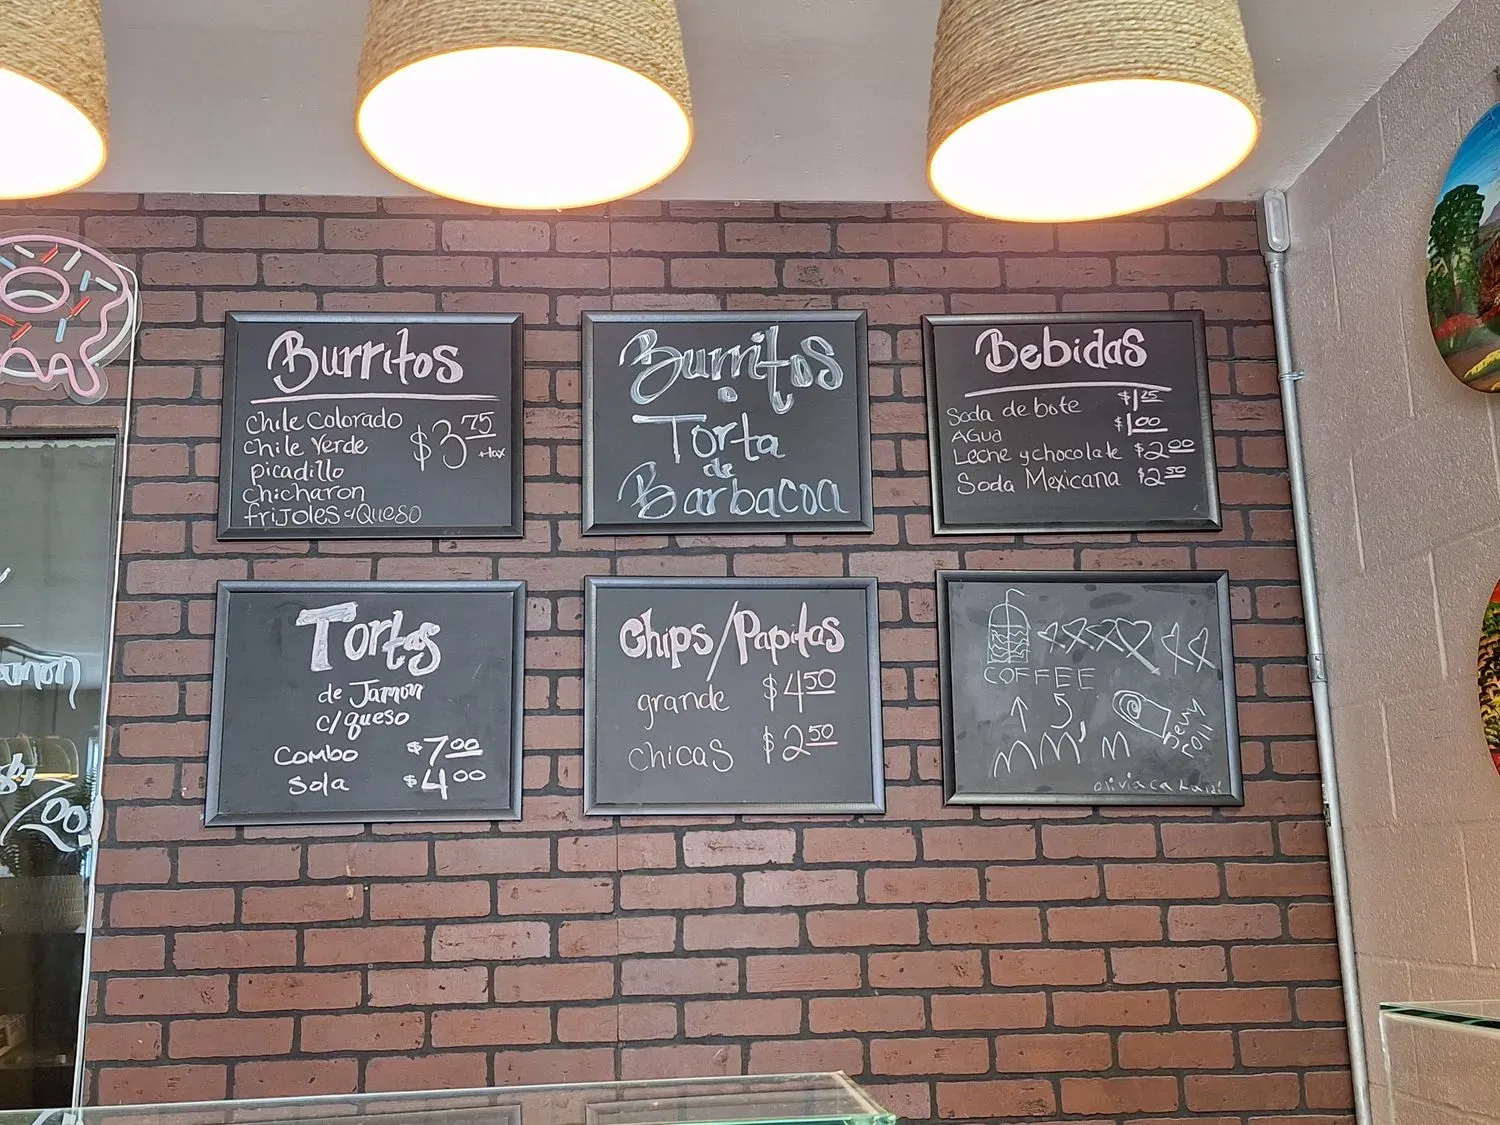 Burritos
Chile Colorado
Chile Verde
$3.75 +tax
picadillo
chicharon
frijoles c/Queso
Burritos
o
Torta
de
Barbacoa
Bebidas
Soda de bote $1.25
AGUA $1.00
Leche y chocolate $2.00
Soda Mexicana $2.50
Tortas
de Jamon
c/queso
Combo $7.00
Sola $4.00
Chips/Papitas
grande $4.50
chicas $2.50
COFFEE